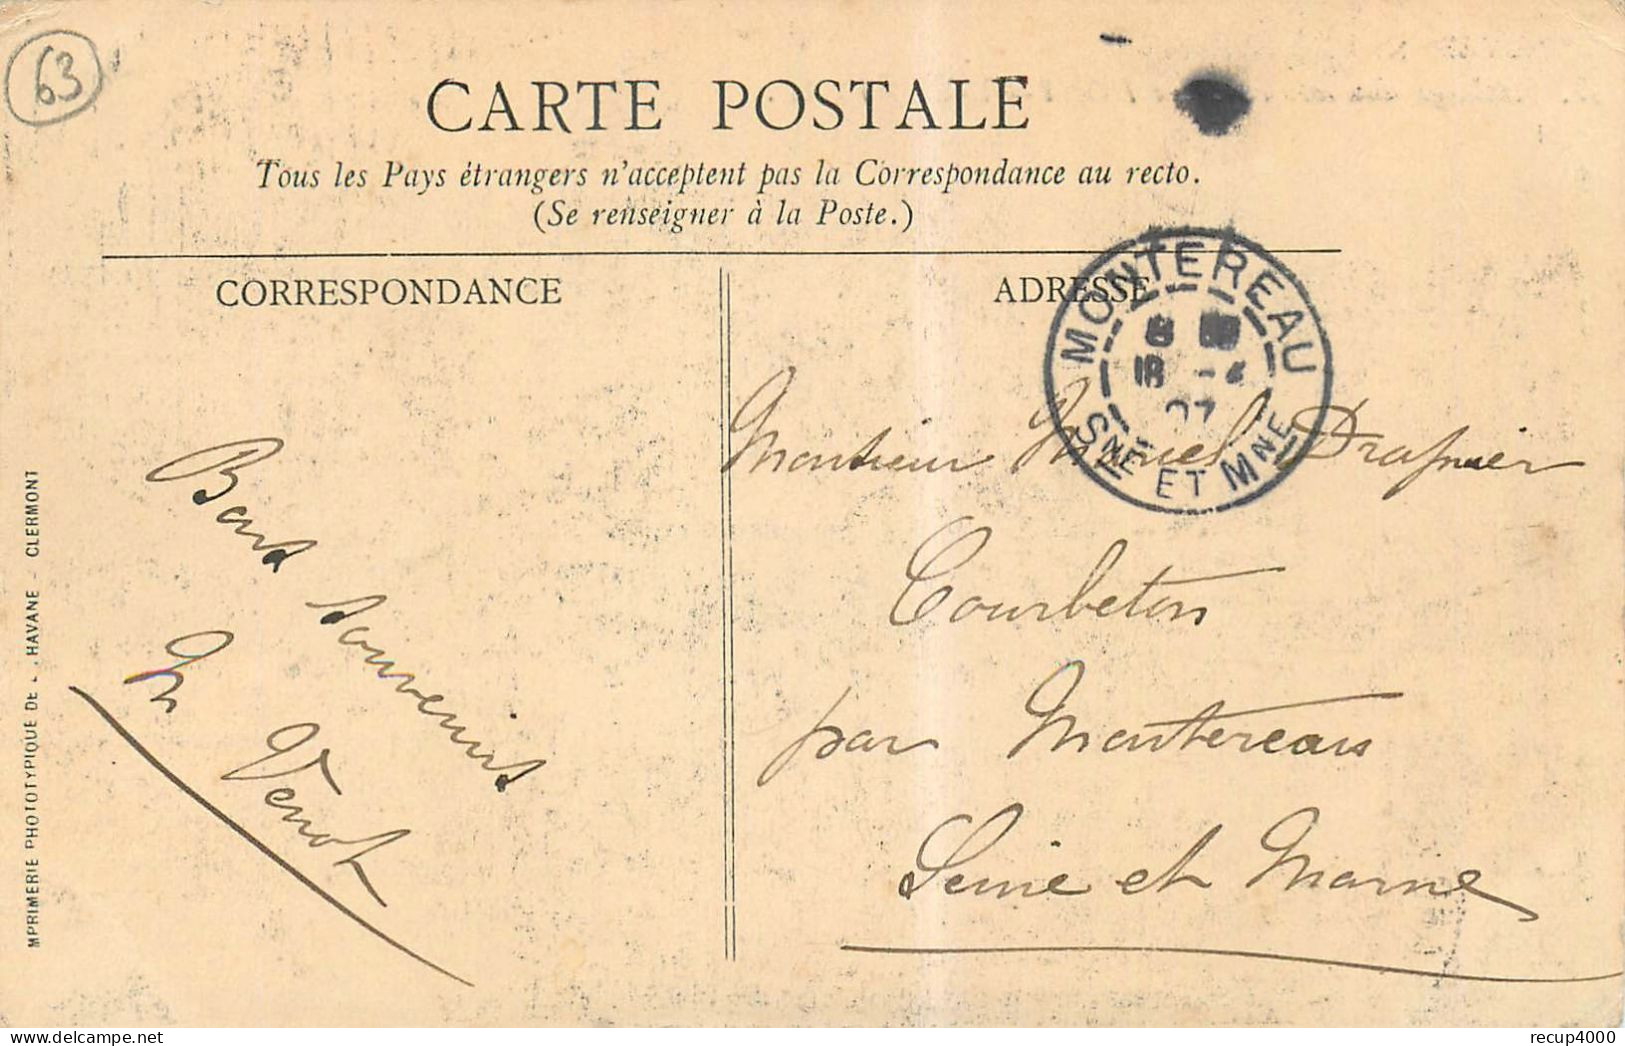 63
CARTE POSTALE
Tous les Pays étrangers n'acceptent pas la Correspondance au recto.
(Se renseigner à la Poste.)
CORRESPONDANCE
ADRESSE
MONTEREAU
18 -4
07
SNE ET MNE
Bons souvenirs
Venot
Monsieur Drapier
Courbeton
par Montereau
Seine et Marne
MPRIMERIE PHOTOTYPIQUE DE L. HAVANE - CLERMONT
recup4000